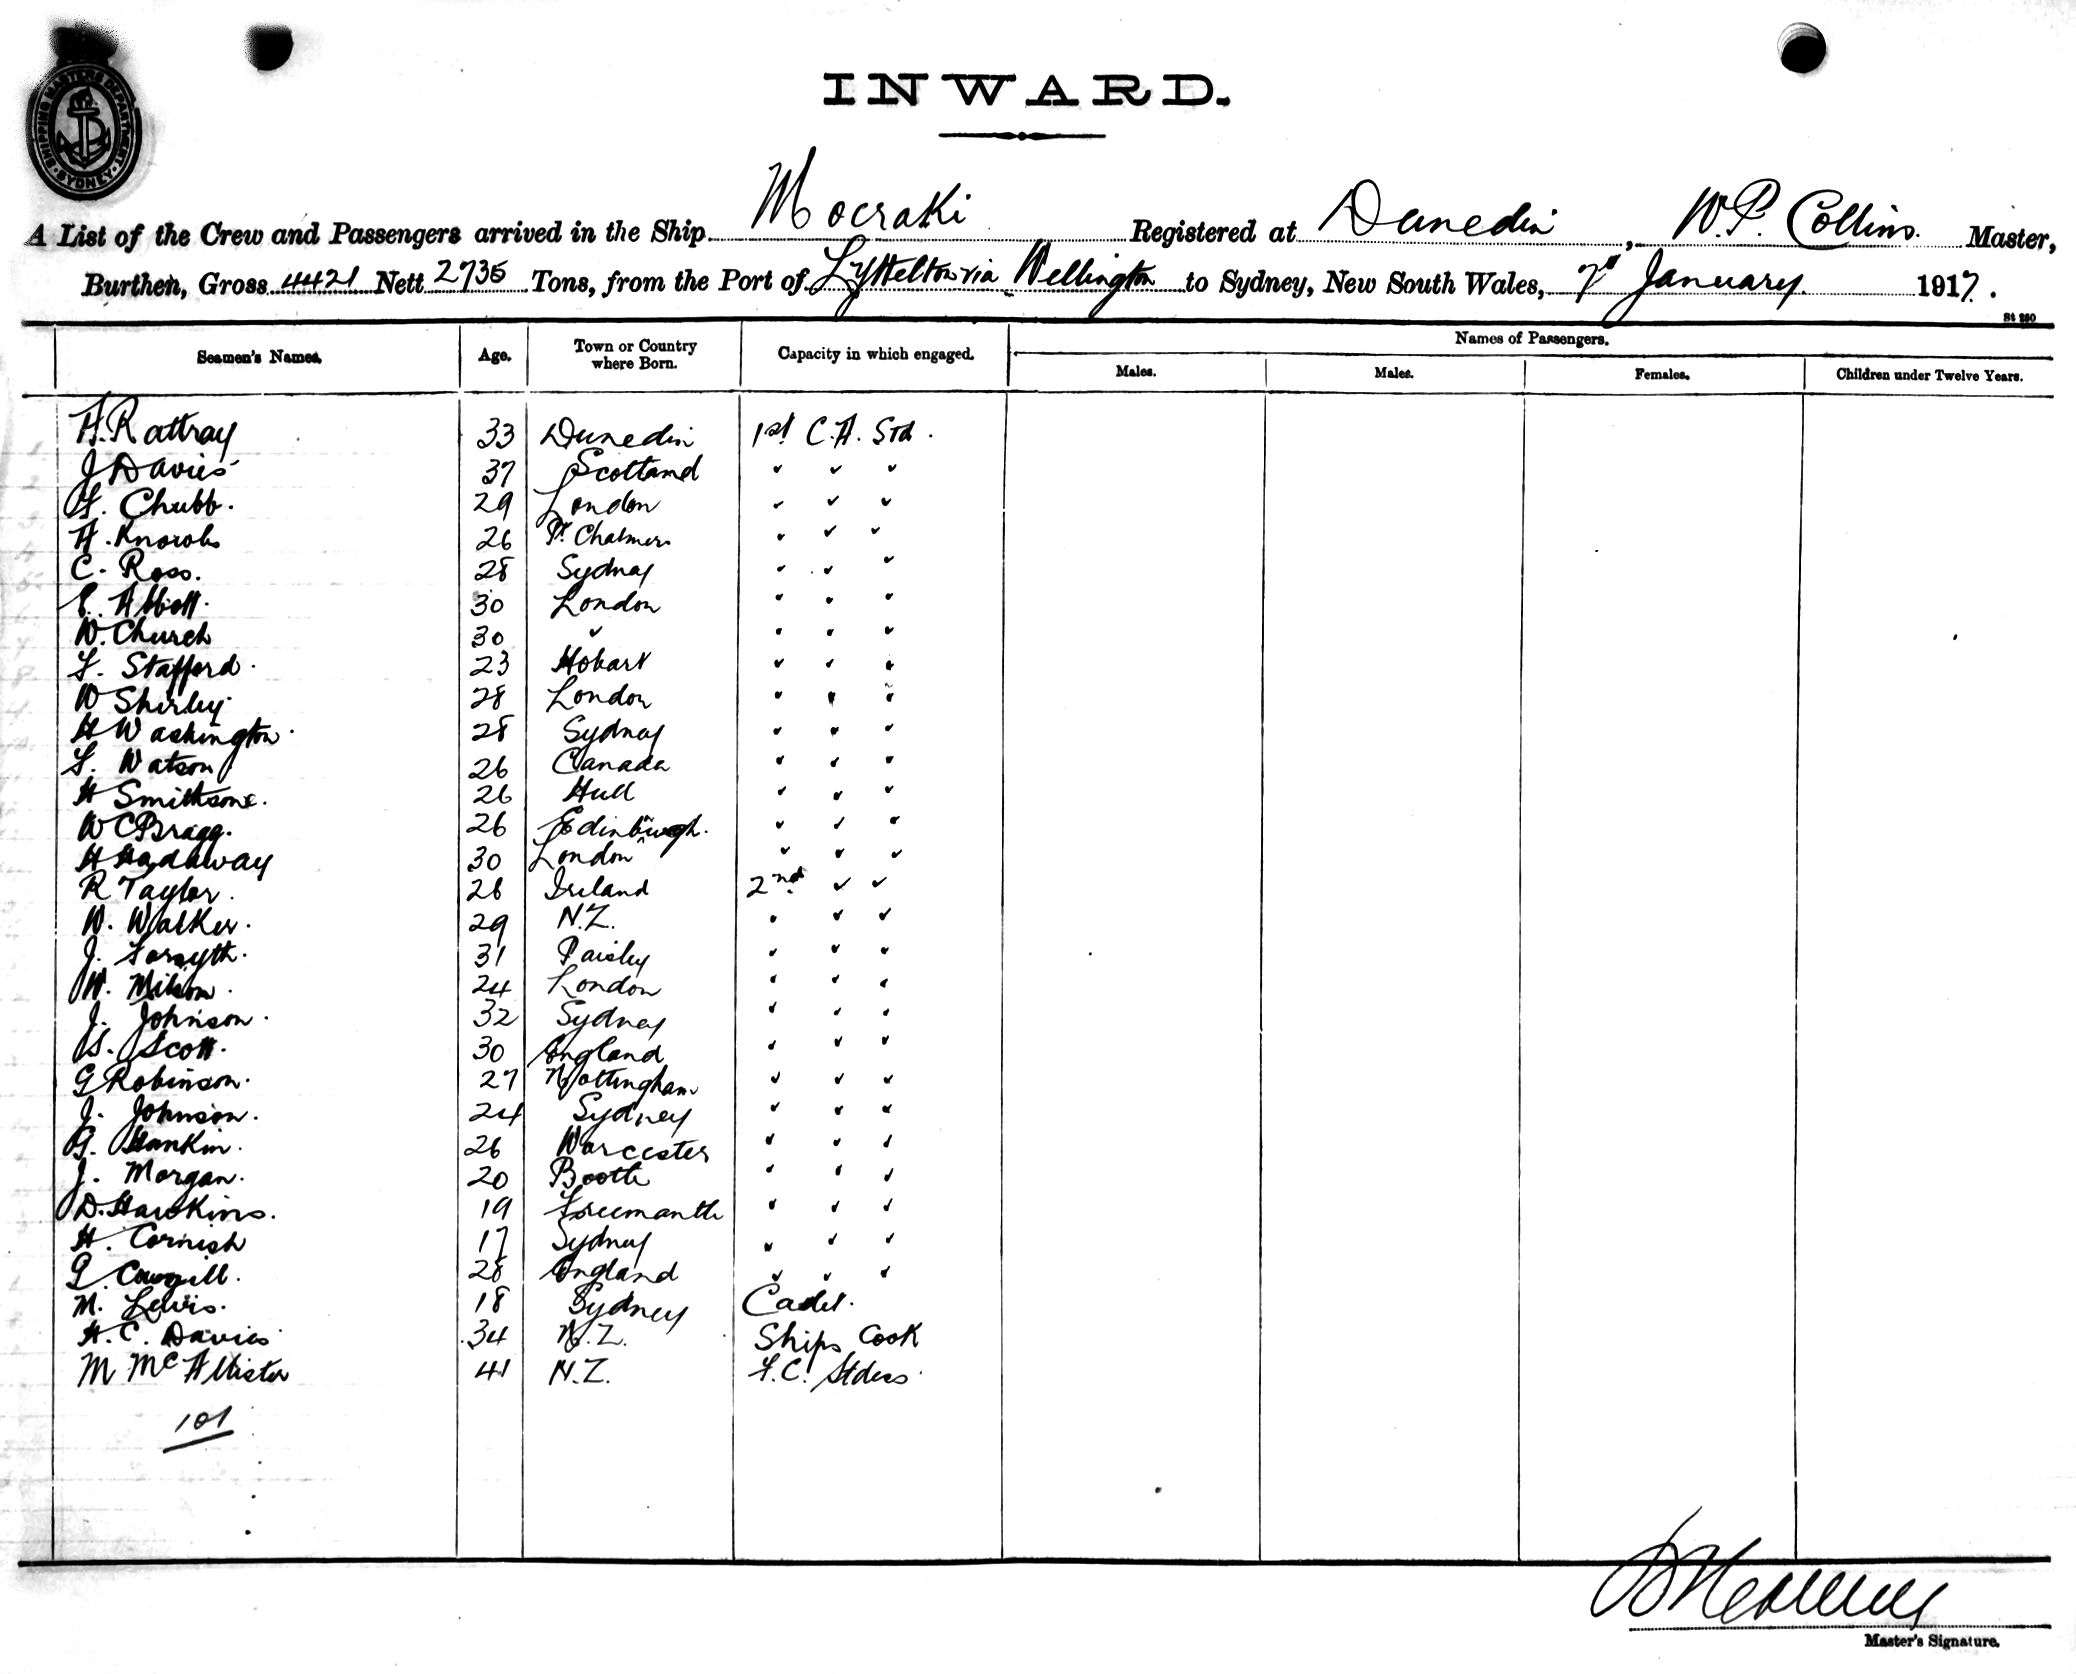 SHIPPING MASTERS DEPARTMENT SYDNEY
INWARD.
A List of the Crew and Passengers arrived in the Ship Moeraki Registered at Dunedin, W.P. Collins. Master,
Burthen, Gross 4421 Nett 2735 Tons, from the Port of Lyttelton via Wellington to Sydney, New South Wales, 7" January 1917.
St 280
Seamen's Names. Age. Town or Country where Born. Capacity in which engaged. Names of Passengers.
Males. Males. Females. Children under Twelve Years.
A. Rattray 33 Dunedin 1st C.A. Std.
J Davies 37 Scotland " " "
F. Chubb. 29 London " " "
A. Knowles 26 Pt Chalmers " " "
C. Ross. 28 Sydney " " "
E. Abbott. 30 London " " "
W. Church 30 " " " "
F. Stafford. 23 Hobart " " "
W Shirley 28 London " " "
H Washington. 28 Sydney " " "
F. Watson 26 Canada " " "
H Smithsone. 26 Hull " " "
W C Bragg. 26 Edinburgh. " " "
H Hadaway 30 London " " "
R Taylor. 28 Ireland 2nd " "
W. Walker. 29 N.Z. " " "
J. Forsyth. 31 Paisley " " "
W. 24 London " " "
J. Johnson. 32 Sydney " " "
Scott. 30 England " " "
G Robinson. 27 Nottingham " " "
J. Johnson. 24 Sydney " " "
G. Hankin. 26 Worcester " " "
J. Morgan. 20 Bootle " " "
D. Hawkins. 19 Freemantle " " "
H. Cornish 17 Sydney " " "
G. Cowgill. 28 England " " "
M. Lewis. 18 Sydney Cadet.
H. C. Davies 34 N.Z. Ships Cook
M McAllister 41 N.Z. F.C. Stdess.
101
Master's Signature.